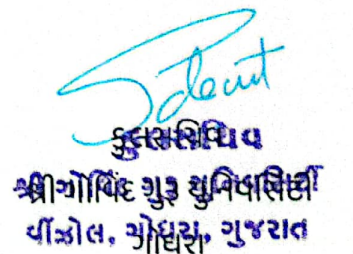 કુલસચિવ
શ્રી ગોવિંદ ગુરુ યુનિવર્સિટી
વીંઝોલ, ગોધરા, ગુજરાત
ગોધરા